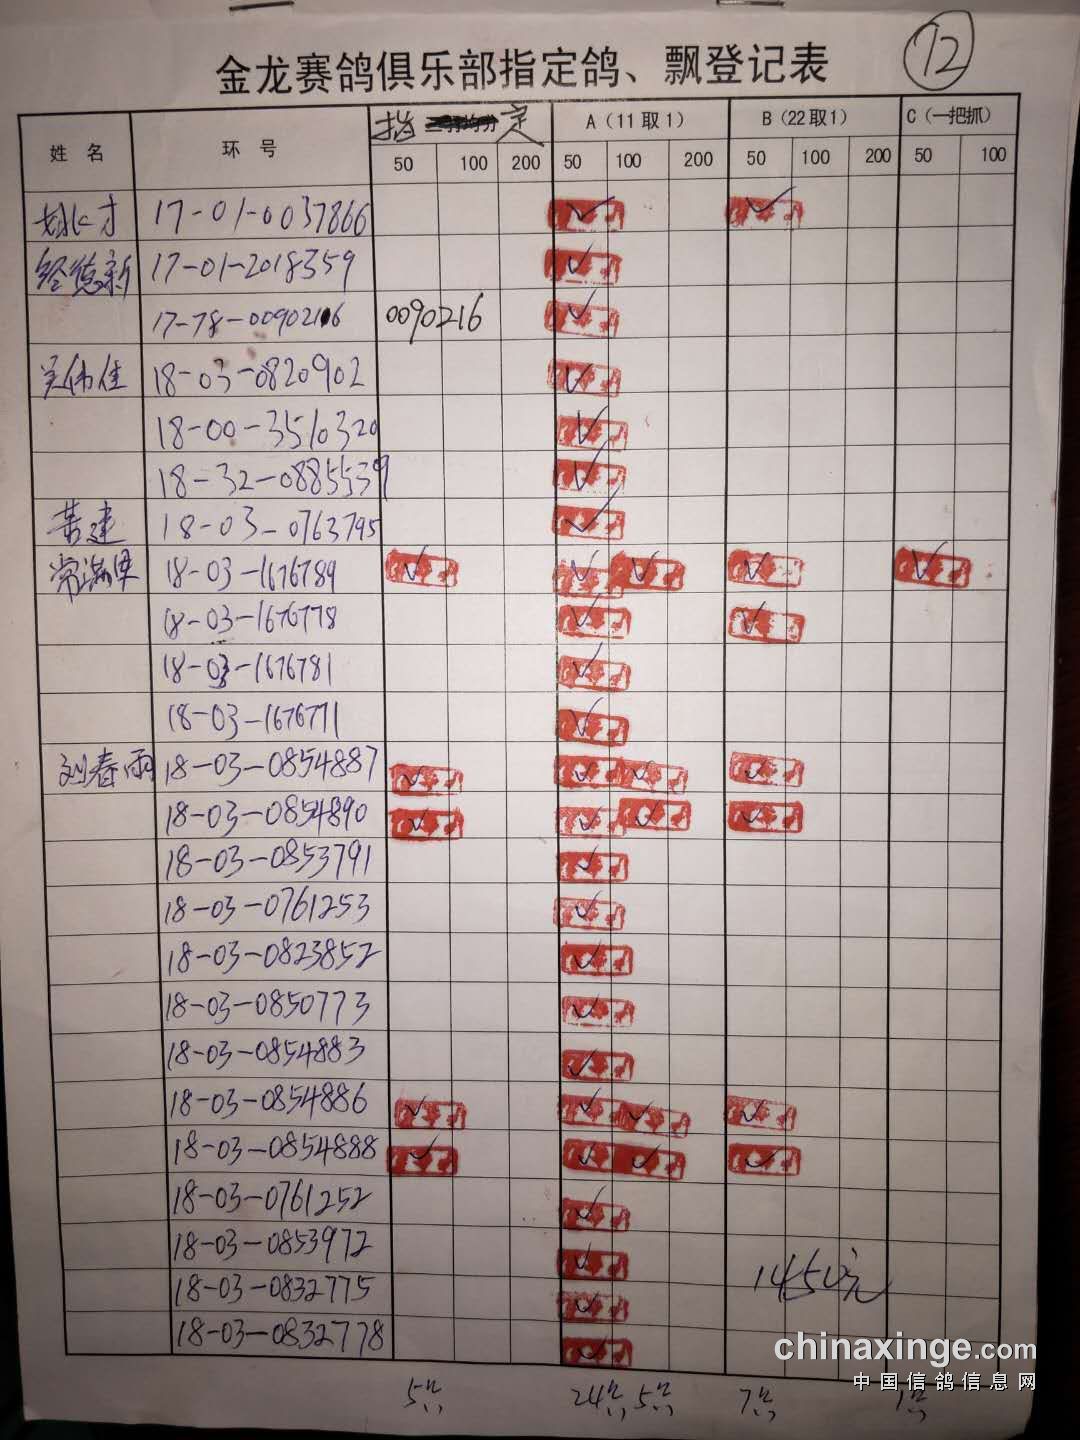 金龙赛鸽俱乐部指定鸽、飘登记表 12
姓 名 环 号 指定 A（11取1） B（22取1） C（一把抓）
50 100 200 50 100 200 50 100 200 50 100
17-01-0037866 ✓ ✓
经德新 17-01-2018359 ✓
17-78-0090216 0090216 ✓
吴伟佳 18-03-0820902 ✓
18-00-3510320 ✓
18-32-0885539 ✓
18-03-0763795 ✓
常满贵 18-03-1676789 ✓ ✓ ✓ ✓ ✓
18-03-1676778 ✓ ✓
18-03-1676781 ✓
18-03-1676771 ✓
刘春雨 18-03-0854887 ✓ ✓ ✓ ✓
18-03-0854890 ✓ ✓ ✓ ✓
18-03-0853791 ✓
18-03-0761253 ✓
18-03-0823852 ✓
18-03-0850773 ✓
18-03-0854883 ✓
18-03-0854886 ✓ ✓ ✓ ✓
18-03-0854888 ✓ ✓ ✓ ✓
18-03-0761252 ✓
18-03-0853972 ✓
18-03-0832775 ✓
18-03-0832778 ✓
1450元
5只 24只 5只 7只 1只
chinaxinge.com
中国信鸽信息网